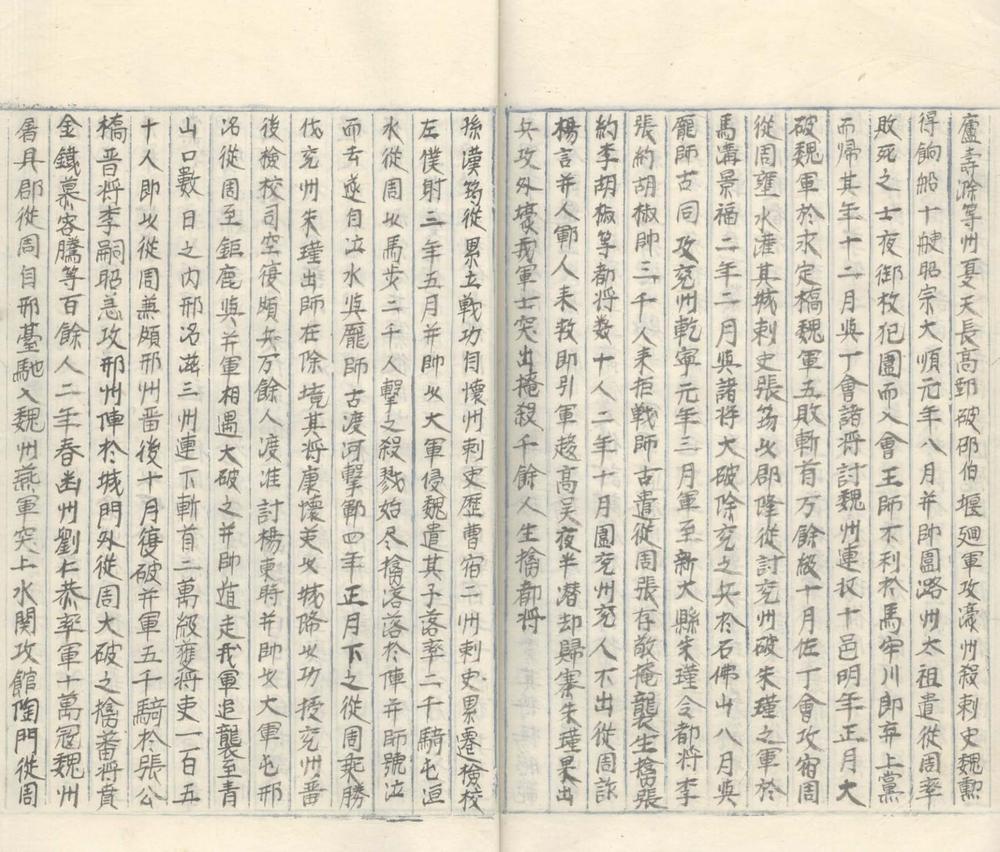 廬壽滁等州夏天長高郵破邵伯堰廻軍攻濠州殺刺史魏勲
得餉船十艘昭宗大順元年八月并帥圍路州太祖遣從周率
敗死之士夜御枚犯圍而入會王師不利於馬牢川即弃上黨
而歸其年十二月與丁會諸將討魏州連拔十邑明年正月大
破魏軍於永定橋魏軍五敗斬首万餘級十月佐丁會攻宿周
從周壅水灌其城刺史張筠以郡降從討兖州破朱瑾之軍於
馬溝景福二年二月與諸將大破除兖之兵於石佛山八月與
龎師古同攻兖州乾寧元年三月軍至新大縣朱瑾令都將李
張約胡椒帥三千人来拒戰師古遣從周張存敬掩襲生擒張
約李胡椒等都將数十人二年十月圍兖州兖人不出從周詐
楊言并人鄆人来救即引軍趍髙吴夜半潜却歸寨朱瑾果出
兵攻外壕我軍士突出掩殺千餘人生擒都将
孫漢筠從累立戰功自懷州刺史歴曹宿二州刺史累遷檢校
左僕射三年五月并帥以大軍侵魏遣其子落率二千騎屯洹
水從周以馬步二千人擊之殺戮始尽擒落落於陣并師號泣
而去遂自泣水與龎師古渡河擊鄆四年正月下之從周乘勝
伐兖州朱瑾出師在除境其將康懷英以城降以功授兖州畱
後檢校司空復領兵万餘人渡淮討楊東時并帥以大軍屯邢
洺從周至鉅鹿與并軍相遇大破之并帥遁走我軍追襲至青
山口數日之内邢洺滋三州連下斬首二萬級獲將吏一百五
十人即以從周兼領邢州畱後十月復破并軍五千騎於張公
橋晋將李嗣昭急攻邢州陣於城門外從周大破之擒蕃將賁
金鐵慕客騰等百餘人二年春幽州劉仁恭率軍十萬冦魏州
屠具郡從周自邢臺馳入魏州燕軍突上水関攻館陶門從周